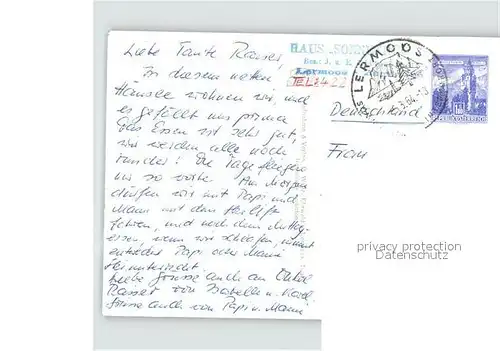 Liebe Tante Rasser,
In diesem netten
Häusle wohnen wir, und
es gefällt uns prima
Das Essen ist sehr gut,
wir werden alle noch
runder! Die Tage fliegen
nur so vorbei. Am Morgen
dürfen wir mit Papi und
Mami mit dem Skilift
fahren, und nach dem Mittag-
essen, wenn wir schlafen, nimmt
entweder Papi oder Mami
Skiunterricht.
Liebe Grüsse auch an Onkel
Rasser von Isabelle u.
Grüsse auch von Papi u. Mami
HAUS „SONN
Bes.: J. u. E.
Lermoos
TEL. 3422
LERMOOS
TIROL
Deutschland
Frau
privacy protection
Datenschutz